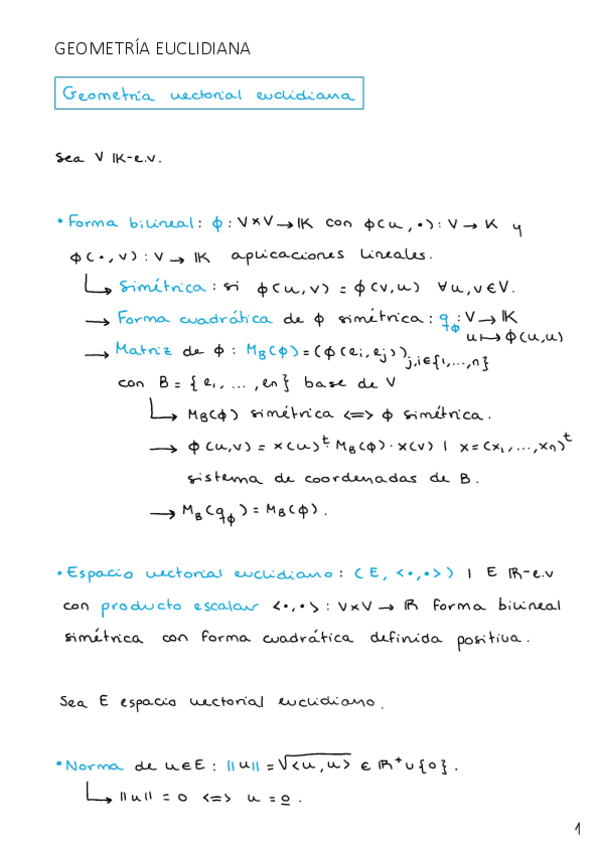 GEOMETRÍA EUCLIDIANA
Geometría vectorial euclidiana
Sea V 𝕂-e.v.
• Forma bilineal: ϕ: V×V → 𝕂 con ϕ(u, •): V → K y
ϕ(•, v): V → 𝕂 aplicaciones lineales.
↳ Simétrica: si ϕ(u,v) = ϕ(v,u) ∀u,v∈V.
→ Forma cuadrática de ϕ simétrica: q_ϕ: V → 𝕂
u ↦ ϕ(u,u)
→ Matriz de ϕ: M_B(ϕ) = (ϕ(e_i, e_j))_{j,i∈{1,...,n}}
con B = {e_1, ..., e_n} base de V
↳ M_B(ϕ) simétrica <=> ϕ simétrica.
→ ϕ(u,v) = x(u)^t · M_B(ϕ) · x(v) | x = (x_1, ..., x_n)^t
sistema de coordenadas de B.
→ M_B(q_ϕ) = M_B(ϕ).
• Espacio vectorial euclidiano: (E, <•,•>) | E ℝ-e.v
con producto escalar <•,•>: V×V → ℝ forma bilineal
simétrica con forma cuadrática definida positiva.
Sea E espacio vectorial euclidiano.
• Norma de u∈E: ||u|| = √<u,u> ∈ ℝ⁺∪{0}.
↳ ||u|| = 0 <=> u = 0̲.
1